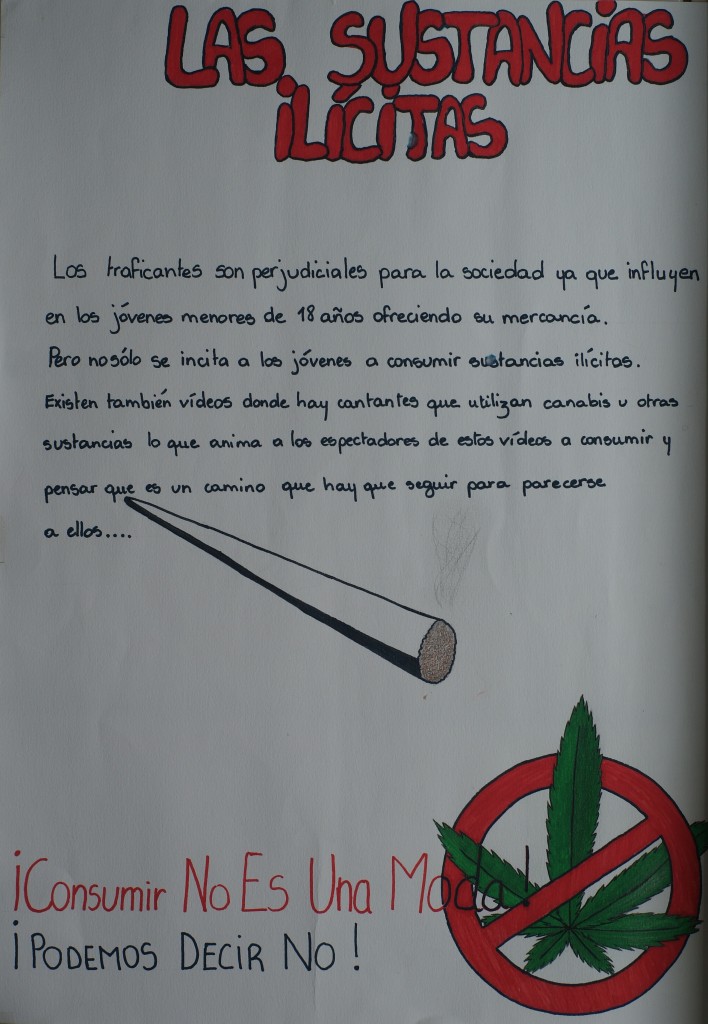 LAS SUSTANCIAS
ILÍCITAS
Los traficantes son perjudiciales para la sociedad ya que influyen
en los jóvenes menores de 18 años ofreciendo su mercancía.
Pero no sólo se incita a los jóvenes a consumir sustancias ilícitas.
Existen también vídeos donde hay cantantes que utilizan canabis u otras
sustancias lo que anima a los espectadores de estos vídeos a consumir y
pensar que es un camino que hay que seguir para parecerse
a ellos....
¡Consumir No Es Una Moda!
¡PODEMOS DECIR NO!